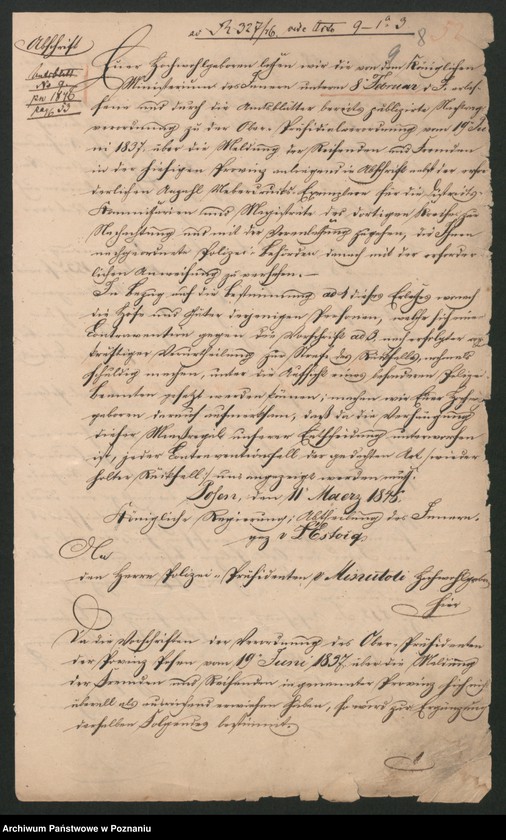 ad R 327/46. vide Acta 9-1a 3
8 52
Abschrift
Amtsblatt
No 9
pro 1846
pag. 53
Euer Hochwohlgeboren lassen wir die von dem Königlichen
Ministerium des Innern unterm 8t Februar d. J. erlas-
sene und durch die Amtsblätter bereits publizirte
verordnung zu der Ober-Präsidialverordnung vom 19t Ju
ni 1837. über die Meldung der Reisenden und Fremden
in der hiesigen Provinz anliegend in Abschrift nebst der erfor
derlichen Anzahl Exemplare für die Distrikts-
Kommissarien und Magistrate des dortigen Kreises zur
Nachachtung und mit der Veranlassung zugehen, die Ihnen
nachgeordnete Polizei-Behörden danach mit der erforder-
lichen Anweisung zu versehen.-
In Bezug auf die Bestimmung ad 4 dieses Erlasses wonach
die Höfe und Güter derjenigen Personen, welche sich einer
Contravention gegen die Vorschrift ad 3. nach erfolgter
Verurtheilung zur Strafe des Rückfalles, nochmals
schuldig machen, unter die Aufsicht eines besonderen Polizei-
beamten gesetzt werden können; machen wir Euer Hochwohl
geboren darauf aufmerksam, daß da die Verhängung
dieser Maaßregel unserer Entscheidung unterworfen
ist, jeder Contraventionsfall der gedachten Art (wieder-
holter Rückfall) uns angezeigt werden muß.
Posen, den 11 Maerz 184
Königliche Regierung; Abtheilung des Innern.
gez v
An
den Herrn Polizei-Präsidenten v Minutoli Hochwohlgeb
hier
Da die Vorschriften der Verordnung des Ober-Präsidenten
der Provinz Posen vom 19t Juni 1837 über die Meldung
der Fremden und Reisenden in genannter Provinz sich nicht
überall als ausreichend erwiesen haben, so wird zur Ergänzung
derselben Folgendes bestimmt.
1
Archiwum Państwowe w Poznaniu